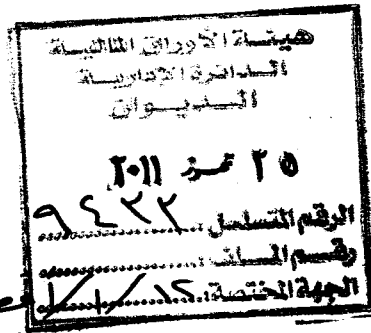 هيئـة الأوراق المالية
الـدائرة الإداريـة
الـديـوان
٢٥ تمـوز ٢٠١١
الرقم المتسلسل: ٩٤٢٢
رقـم المـلـف:
الجهة المختصة: